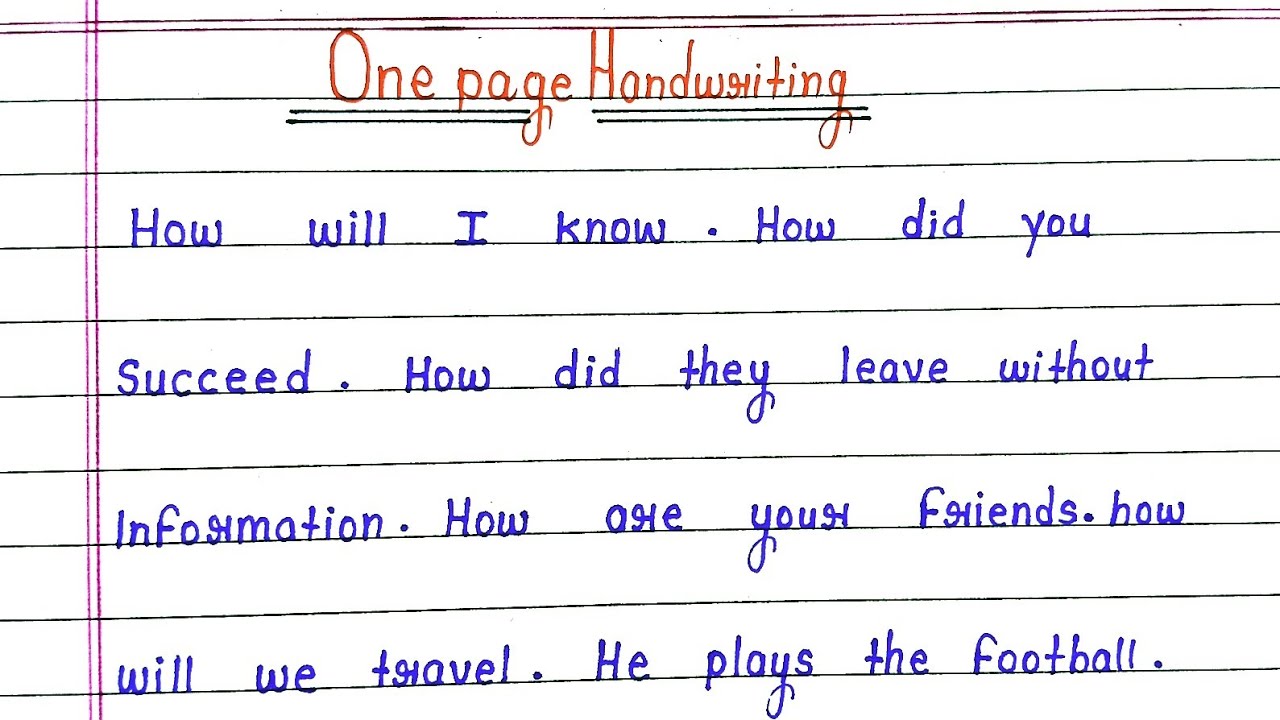 One page Handwriting
How will I know . How did you
Succeed . How did they leave without
Information . How are your friends . how
will we travel . He plays the football .